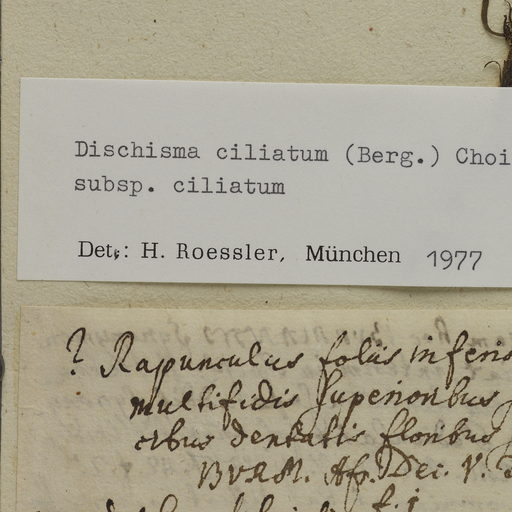 Dischisma ciliatum (Berg.) Choi
subsp. ciliatum
Det.: H. Roessler, München 1977
? Rapunculus foliis inferio
multifidis superioribus
dentatis floribus
BVRM. Afr. Dec. V.
f. 1